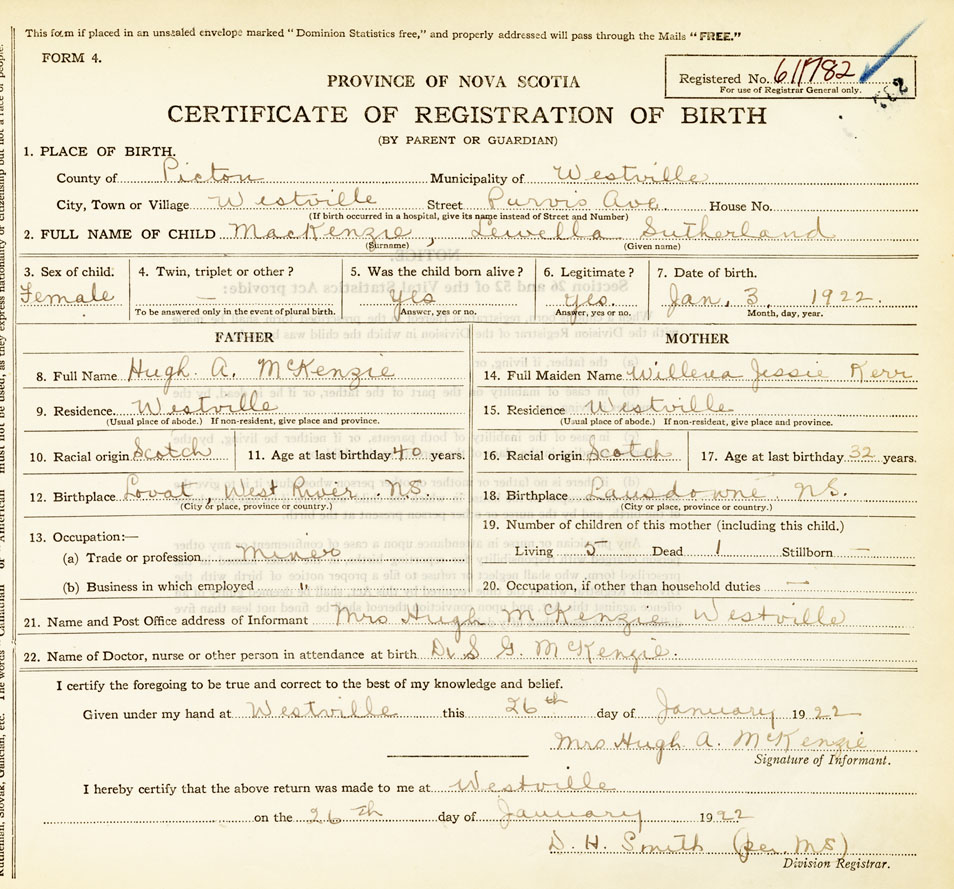 This form if placed in an unsealed envelope marked "Dominion Statistics free," and properly addressed will pass through the Mails "FREE."
FORM 4.
PROVINCE OF NOVA SCOTIA
Registered No. 611782
For use of Registrar General only.
782
CERTIFICATE OF REGISTRATION OF BIRTH
(BY PARENT OR GUARDIAN)
1. PLACE OF BIRTH.
County of Picton Municipality of Westville
City, Town or Village Westville Street Purvis Ave. House No.
(If birth occurred in a hospital, give its name instead of Street and Number)
2. FULL NAME OF CHILD MacKenzie, Lewella Sutherland
(Surname) (Given name)
3. Sex of child. 4. Twin, triplet or other? 5. Was the child born alive? 6. Legitimate? 7. Date of birth.
Female — Yes Yes. Jan. 3, 1922.
To be answered only in the event of plural birth. Answer, yes or no. Answer, yes or no. Month, day, year.
FATHER MOTHER
8. Full Name Hugh A. McKenzie 14. Full Maiden Name Willena Jessie Kerr
9. Residence. Westville 15. Residence Westville
(Usual place of abode.) If non-resident, give place and province. (Usual place of abode.) If non-resident, give place and province.
10. Racial origin Scotch 11. Age at last birthday 40 years. 16. Racial origin Scotch 17. Age at last birthday 32 years.
12. Birthplace Lovat, West River N.S. 18. Birthplace Lansdowne N.S.
(City or place, province or country.) (City or place, province or country.)
13. Occupation:— 19. Number of children of this mother (including this child.)
(a) Trade or profession Miner Living 5 Dead 1 Stillborn —
(b) Business in which employed " 20. Occupation, if other than household duties —
21. Name and Post Office address of Informant Mrs Hugh McKenzie Westville
22. Name of Doctor, nurse or other person in attendance at birth Dr S. G. McKenzie.
I certify the foregoing to be true and correct to the best of my knowledge and belief.
Given under my hand at Westville this 26th day of January 1922
Mrs Hugh A. McKenzie
Signature of Informant.
I hereby certify that the above return was made to me at Westville
on the 26th day of January 1922
D. H. Smith (per MS)
Division Registrar.